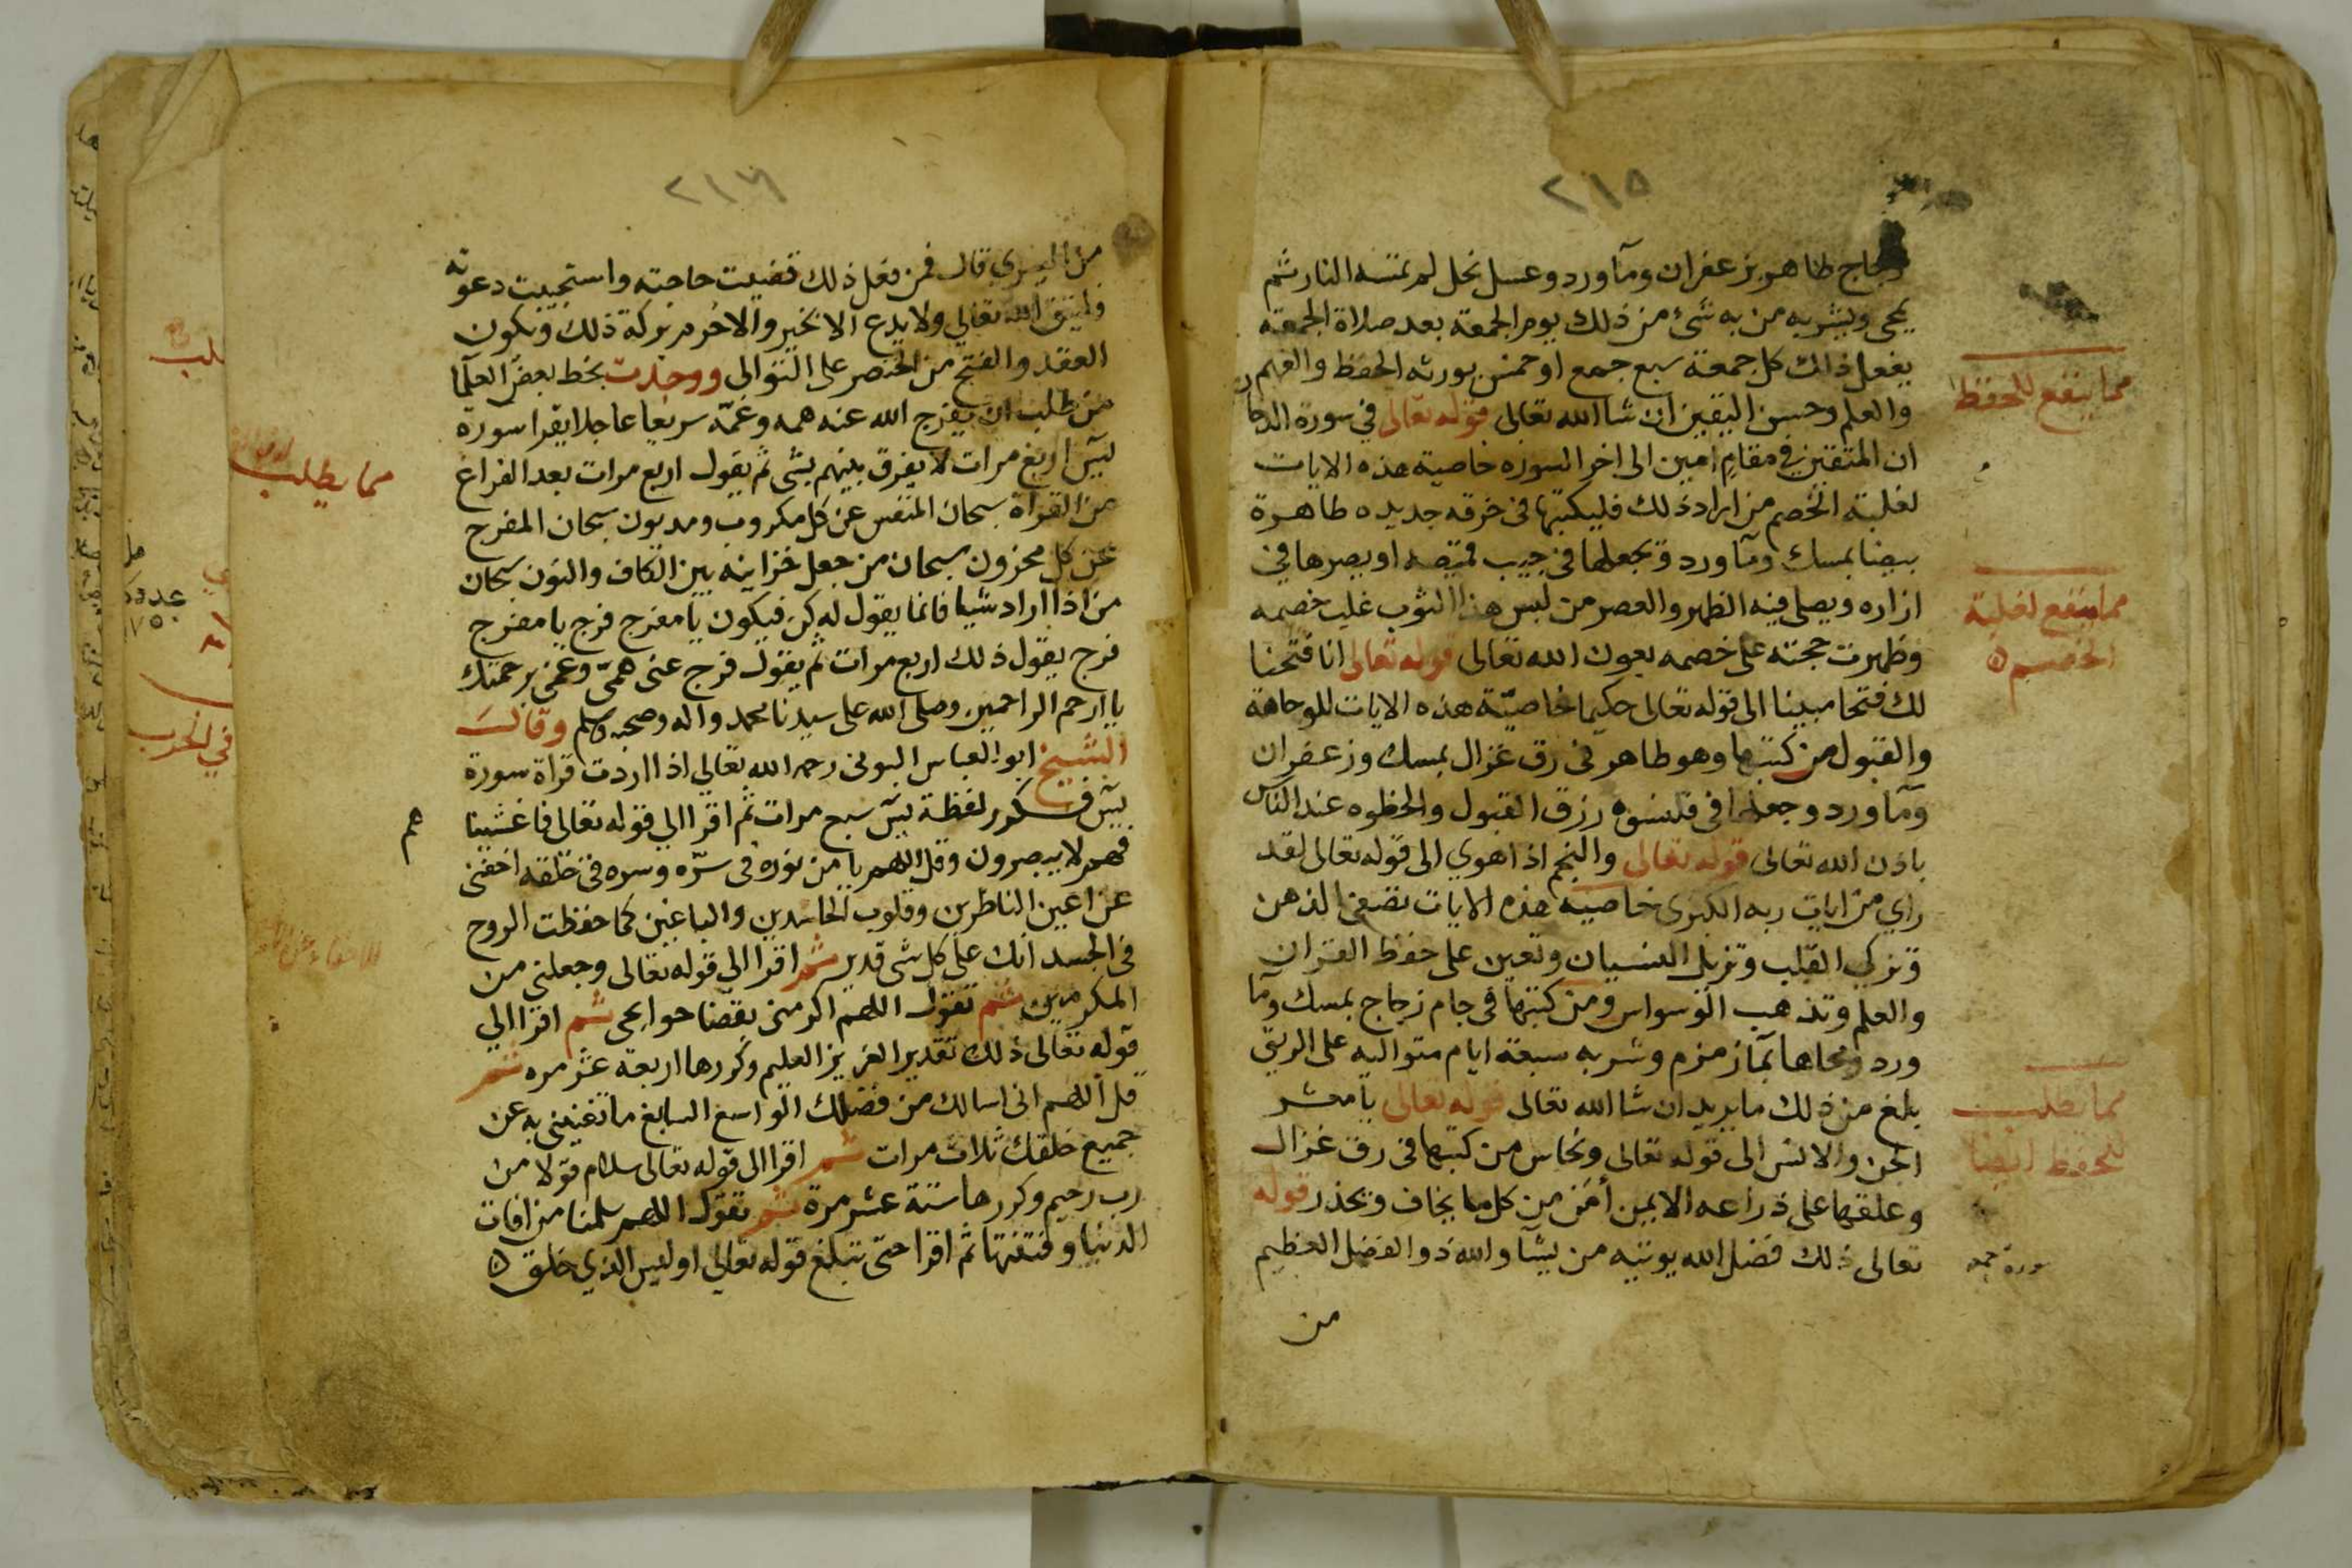 ٢١٥
زجاج طاهر بزعفران ومآ ورد وعسل نحل لم تمسه النار ثم
يمحى ويشربه من به شئ من ذلك يوم الجمعة بعد صلاة الجمعة
يفعل ذلك كل جمعة سبع جمع او خمس يورثه الحفظ والفهم
والعلم وحسن اليقين ان شا الله تعالى قوله تعالى في سورة الدخان
ان المتقين في مقام امين الى اخر السوره خاصية هذه الايات
لغلبة الخصم من اراد ذلك فليكتبها فى خرقه جديده طاهرة
بيضا بمسك ومآ ورد ويجعلها فى جيب قميصه او يصرها في
ازاره ويصلى فيه الظهر والعصر من لبس هذا الثوب غلب خصمه
وظهرت حجته على خصمه بعون الله تعالى قوله تعالى انا فتحنا
لك فتحا مبينا الى قوله تعالى حكيما خاصيّة هذه الايات للوجاهة
والقبول من كتبها وهو طاهر فى رق غزال بمسك وزعفران
ومآ ورد وجعلها فى قلنسوه رزق القبول والحظوه عند الناس
باذن الله تعالى قوله تعالى والنجم اذا هوي الى قوله تعالى لقد
راي من ايات ربه الكبرى خاصية هذه الايات تصفى الذهن
وتزكي القلب وتزيل النسيان وتعين على حفظ القران
والعلم وتذهب الوسواس ومن كتبها فى جام زجاج بمسك ومآ
ورد ومحاها بمآ زمزم وشربه سبعة ايام متواليه على الريق
بلغ من ذلك ما يريد ان شا الله تعالى قوله تعالى يا معشر
الجن والانس الى قوله تعالى ونحاس من كتبها فى رق غزال
وعلقها على ذراعه الايمن أمن من كل ما يخاف ويحذر قوله
تعالى ذلك فضل الله يوتيه من يشآ والله ذو الفضل العظيم
من
مما ينفع للحفظ
مما ينفع لغلبة
الخصم
مما يطلب
للحفظ ايضا
سورة جمعه
٢١٦
قال فمن فعل ذلك قضيت حاجته واستجيبت دعوته
وليتق الله تعالي ولا يدع الا بخير والا حُرم بركة ذلك ويكون
العقد والفتح من الخنصر على التوالى ووجدت بخط بعض العلمآ
من طلب ان يفرج الله عنه همه وغمّه سريعا عاجلا يقرا سورة
يسٓ اربع مرات لا يفرق بينهم بشى ثم يقول اربع مرات بعد الفراغ
من القراة سبحان المنفس عن كل مكروب ومديون سبحان المفرج
عن كل محزون سبحان من جعل خزاينه بين الكاف والنون سبحان
من اذا اراد شيا فانما يقول له كن فيكون يا مفرج فرج يا مفرج
فرج يقول ذلك اربع مرات ثم يقول فرج عنى همّى وغمى برحمتك
يا ارحم الراحمين وصلى الله على سيدنا محمد واله وصحبه وسلم وقال
الشيخ ابو العباس البونى رحمه الله تعالي اذا اردت قراة سورة
يسٓ فكرر لفظة يسٓ سبع مرات ثم اقرا الي قوله تعالى فاغشيناهم
فهم لا يبصرون وقل اللهم يا من نوره فى سرّه وسره فى خلقه اخفنى
عن اعين الناظرين وقلوب الحاسدين والباغين كما حفظت الروح
فى الجسد انك على كل شى قدير ثم اقرا الي قوله تعالى وجعلنى من
المكرمين ثم تقول اللهم اكرمنى بقضا حوايجى ثم اقرا الي
قوله تعالى ذلك تقدير العزيز العليم وكررها اربعة عشر مره ثم
قل اللهم انى اسالك من فضلك الواسع السابغ ما تغينى به عن
جميع خلقك ثلاث مرات ثم اقرا الى قوله تعالى سلام قولا من
رب رحيم وكررها ستة عشر مرة ثم تقول اللهم سلمنا من افات
الدنيا وفتنتها ثم اقرا حتى تبلغ قوله تعالي اوليس الذي خلق
مما يطلب
في الحرب